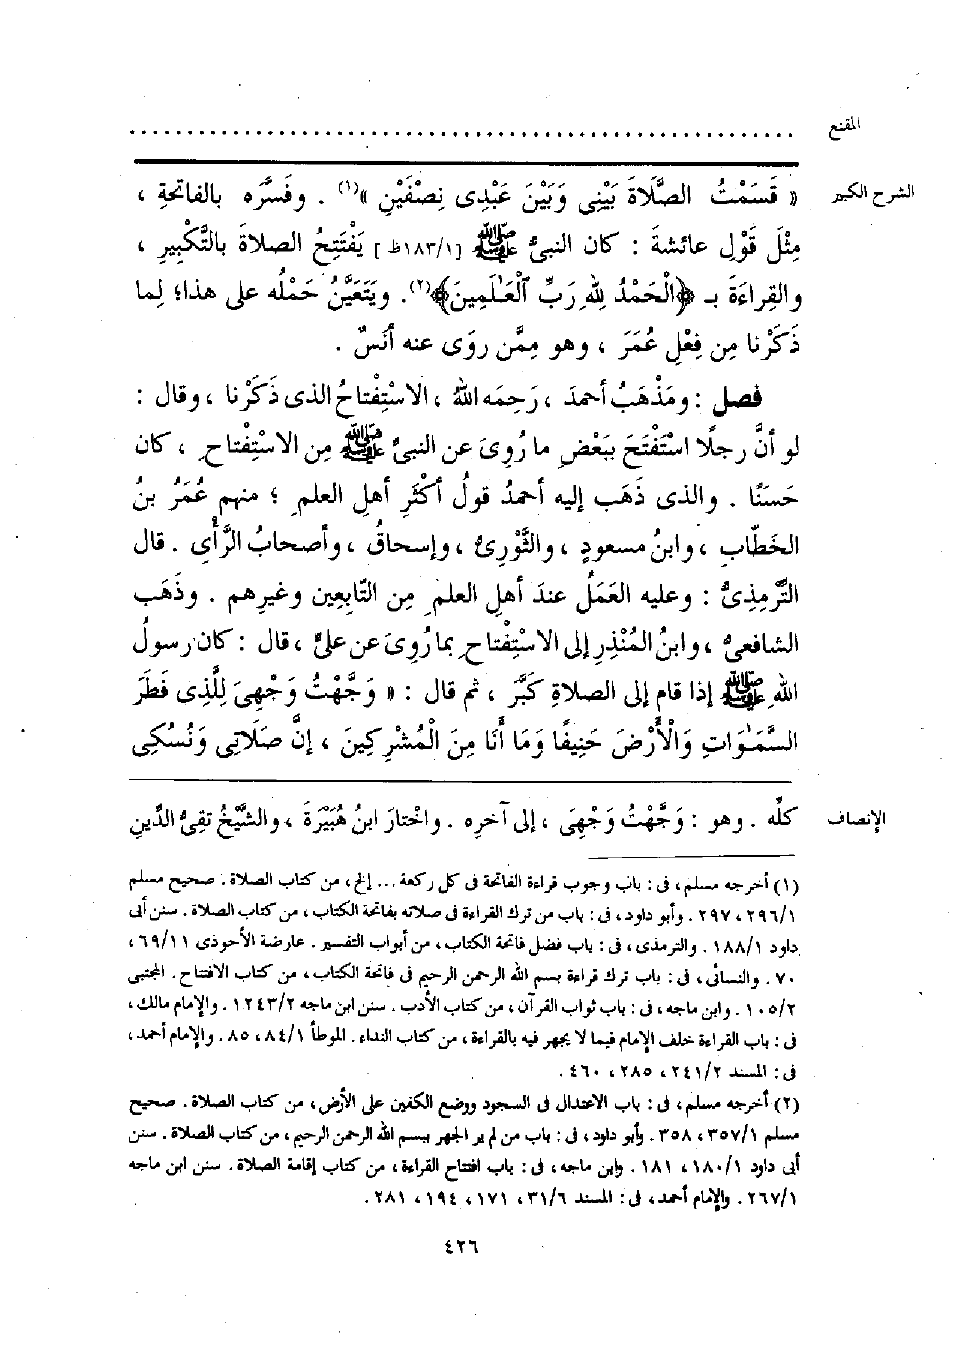 المقنع ............................................................
الشرح الكبير « قَسَمْتُ الصَّلَاةَ بَيْنِى وَبَيْنَ عَبْدِى نِصْفَيْنِ »(١) . وفَسَّرَه بالفاتحةِ ،
مِثْلَ قَوْلِ عائشةَ : كان النبىُّ ﷺ [١/١٨٣ظ] يَفْتَتِحُ الصلاةَ بالتَّكْبِيرِ ،
والقِراءَةَ بـ ﴿الْحَمْدُ لِلَّهِ رَبِّ الْعَـٰلَمِينَ﴾(٢). ويَتَعَيَّنُ حَمْلُه على هذا؛ لِما
ذَكَرْنا مِن فِعْلِ عُمَرَ ، وهو مِمَّن روَى عنه أنَسٌ .
فصل : ومَذْهَبُ أحمدَ ، رَحِمَه اللهُ ، الاسْتِفْتاحُ الذى ذَكَرْنا ، وقال :
لو أنَّ رجلًا اسْتَفْتَحَ ببَعْضِ ما رُوِىَ عن النبىِّ ﷺ مِن الاسْتِفْتاحِ ، كان
حَسَنًا . والذى ذَهَب إليه أحمدُ قولُ أكْثَرِ أهلِ العلمِ ؛ منهم عُمَرُ بنُ
الخَطَّابِ ، وابنُ مسعودٍ ، والثَّوْرِىُّ ، وإسحاقُ ، وأصحابُ الرَّأْىِ . قال
التِّرْمِذِىُّ : وعليه العَمَلُ عندَ أهلِ العلمِ مِن التَّابِعِين وغيرِهم . وذَهَب
الشافعىُّ ، وابنُ المُنْذِرِ إلى الاسْتِفْتاحِ بما رُوِىَ عن علىٍّ ، قال : كان رسولُ
اللهِ ﷺ إذا قام إلى الصلاةِ كَبَّرَ ، ثم قال : « وَجَّهْتُ وَجْهِىَ لِلَّذِى فَطَرَ
السَّمَـٰوَاتِ وَالْأَرْضَ حَنِيفًا وَمَا أَنَا مِنَ الْمُشْرِكِينَ ، إِنَّ صَلَاتِى وَنُسُكِى
الإنصاف كلِّه . وهو : وَجَّهْتُ وَجْهِىَ ، إلى آخرِه . واخْتارَ ابنُ هُبَيْرَةَ ، والشَّيْخُ تقِىُّ الدِّينِ
(١) أخرجه مسلم ، فى : باب وجوب قراءة الفاتحة فى كل ركعة ... إلخ ، من كتاب الصلاة . صحيح مسلم
١/٢٩٦ ، ٢٩٧ . وأبو داود ، فى : باب من ترك القراءة فى صلاته بفاتحة الكتاب ، من كتاب الصلاة . سنن أبى
داود ١/١٨٨ . والترمذى ، فى : باب فضل فاتحة الكتاب ، من أبواب التفسير . عارضة الأحوذى ١١/٦٩ ،
٧٠ . والنسائى ، فى : باب ترك قراءة بسم الله الرحمن الرحيم فى فاتحة الكتاب ، من كتاب الافتتاح . المجتبى
٢/١٠٥ . وابن ماجه ، فى : باب ثواب القرآن ، من كتاب الأدب . سنن ابن ماجه ٢/١٢٤٣ . والإمام مالك ،
فى : باب القراءة خلف الإمام فيما لا يجهر فيه بالقراءة ، من كتاب النداء . الموطأ ١/٨٤ ، ٨٥ . والإمام أحمد ،
فى : المسند ٢/٢٤١ ، ٢٨٥ ، ٤٦٠ .
(٢) أخرجه مسلم ، فى : باب الاعتدال فى السجود ووضع الكفين على الأرض ، من كتاب الصلاة . صحيح
مسلم ١/٣٥٧ ، ٣٥٨ . وأبو داود ، فى : باب من لم ير الجهر ببسم الله الرحمن الرحيم ، من كتاب الصلاة . سنن
أبى داود ١/١٨٠ ، ١٨١ . وابن ماجه ، فى : باب افتتاح القراءة ، من كتاب إقامة الصلاة . سنن ابن ماجه
١/٢٦٧ . والإمام أحمد ، فى : المسند ٦/٣١ ، ١٧١ ، ١٩٤ ، ٢٨١ .
٤٢٦